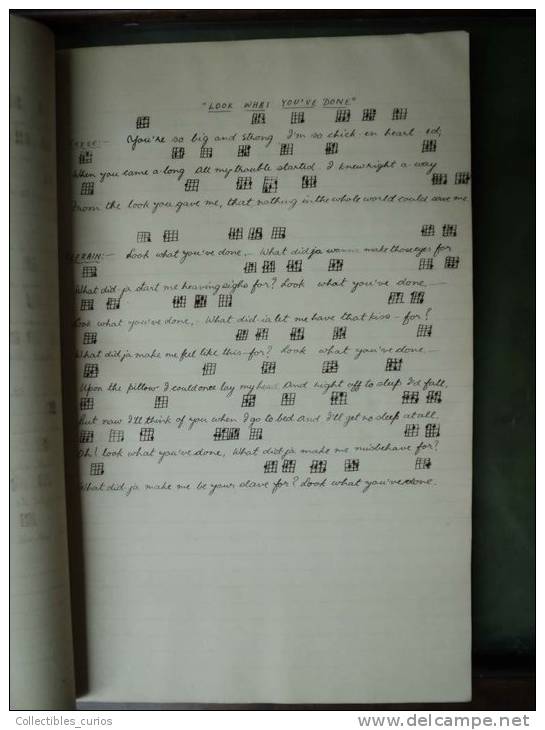 "LOOK WHAT YOU'VE DONE"
You're so big and strong I'm so chick-en heart-ed,
When you came a-long All my trouble started. I knew right a-way
From the look you gave me, that, nothing in the whole world could save me
Look what you've done,- What did ja wanna make those eyes for
What did-ja start me heaving sighs for? Look what you've done,-
Look what you've done,- What did-ja let me have that kiss-for?
What did ja make me feel like this-for? Look what you've done-
Upon the pillow I could once lay my head And right off to sleep I'd fall,
But now I'll think of you when I go to bed And I'll get no sleep at all,
Oh! look what you've done, What did ja make me misbehave for?
What did ja make me be your slave for? Look what you've done.
Collectibles_curios
www.delcampe.net